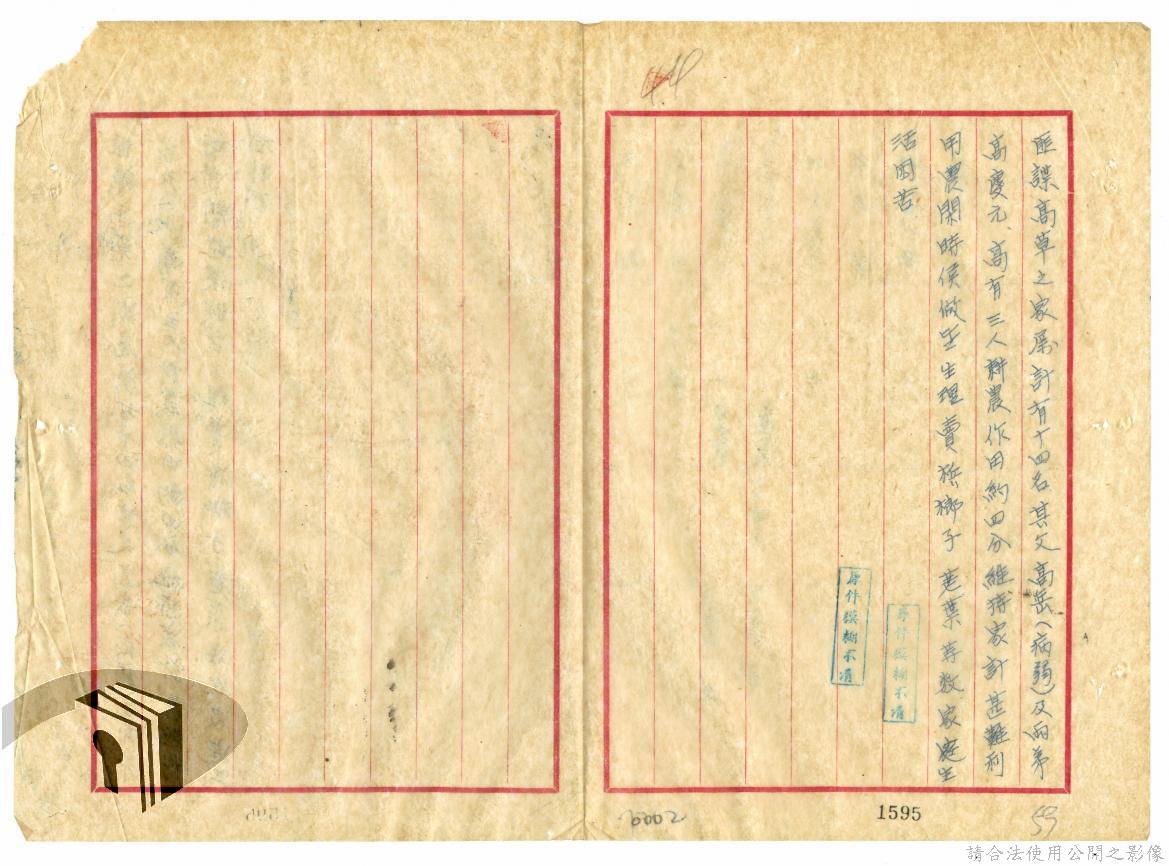 匪諜高草之家屬計有十四名其父高岳(病弱)及兩弟
高慶元、高有三人耕農作田約四分維持家計甚難利
用農閑時侯做生理賣檳榔子荖葉等救家庭生
活困苦
原件模糊不清
原件模糊不清
1595
0002
53
請合法使用公開之影像